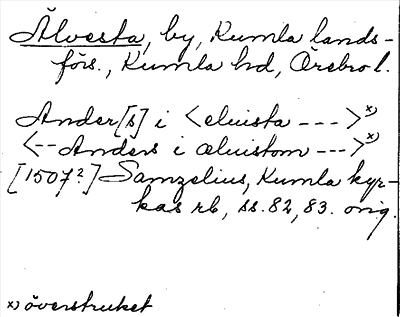 Älvesta, by, Kumla lands-
förs., Kumla hd, Örebro l.
Ander[s] i <eluista --->x)
<--Anders i æluistom --->x)
[1507?] Samzelius, Kumla kyr-
kas rb, ss. 82, 83. orig.
x) överstruket